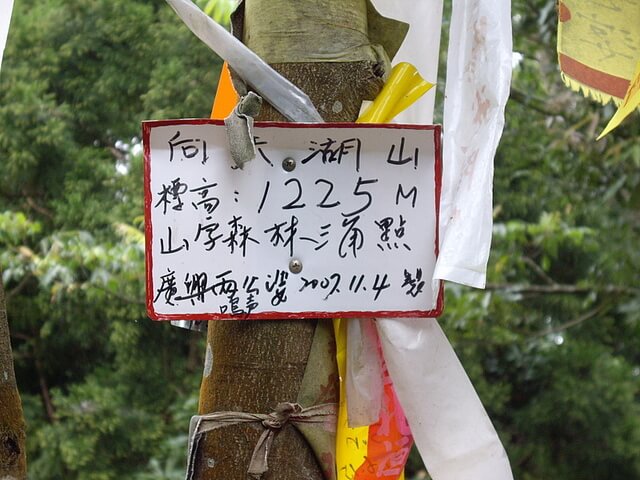 向天湖山
標高:1225M
山字森林三角點
廣興兩公婆 2007.11.4 製
鳴声